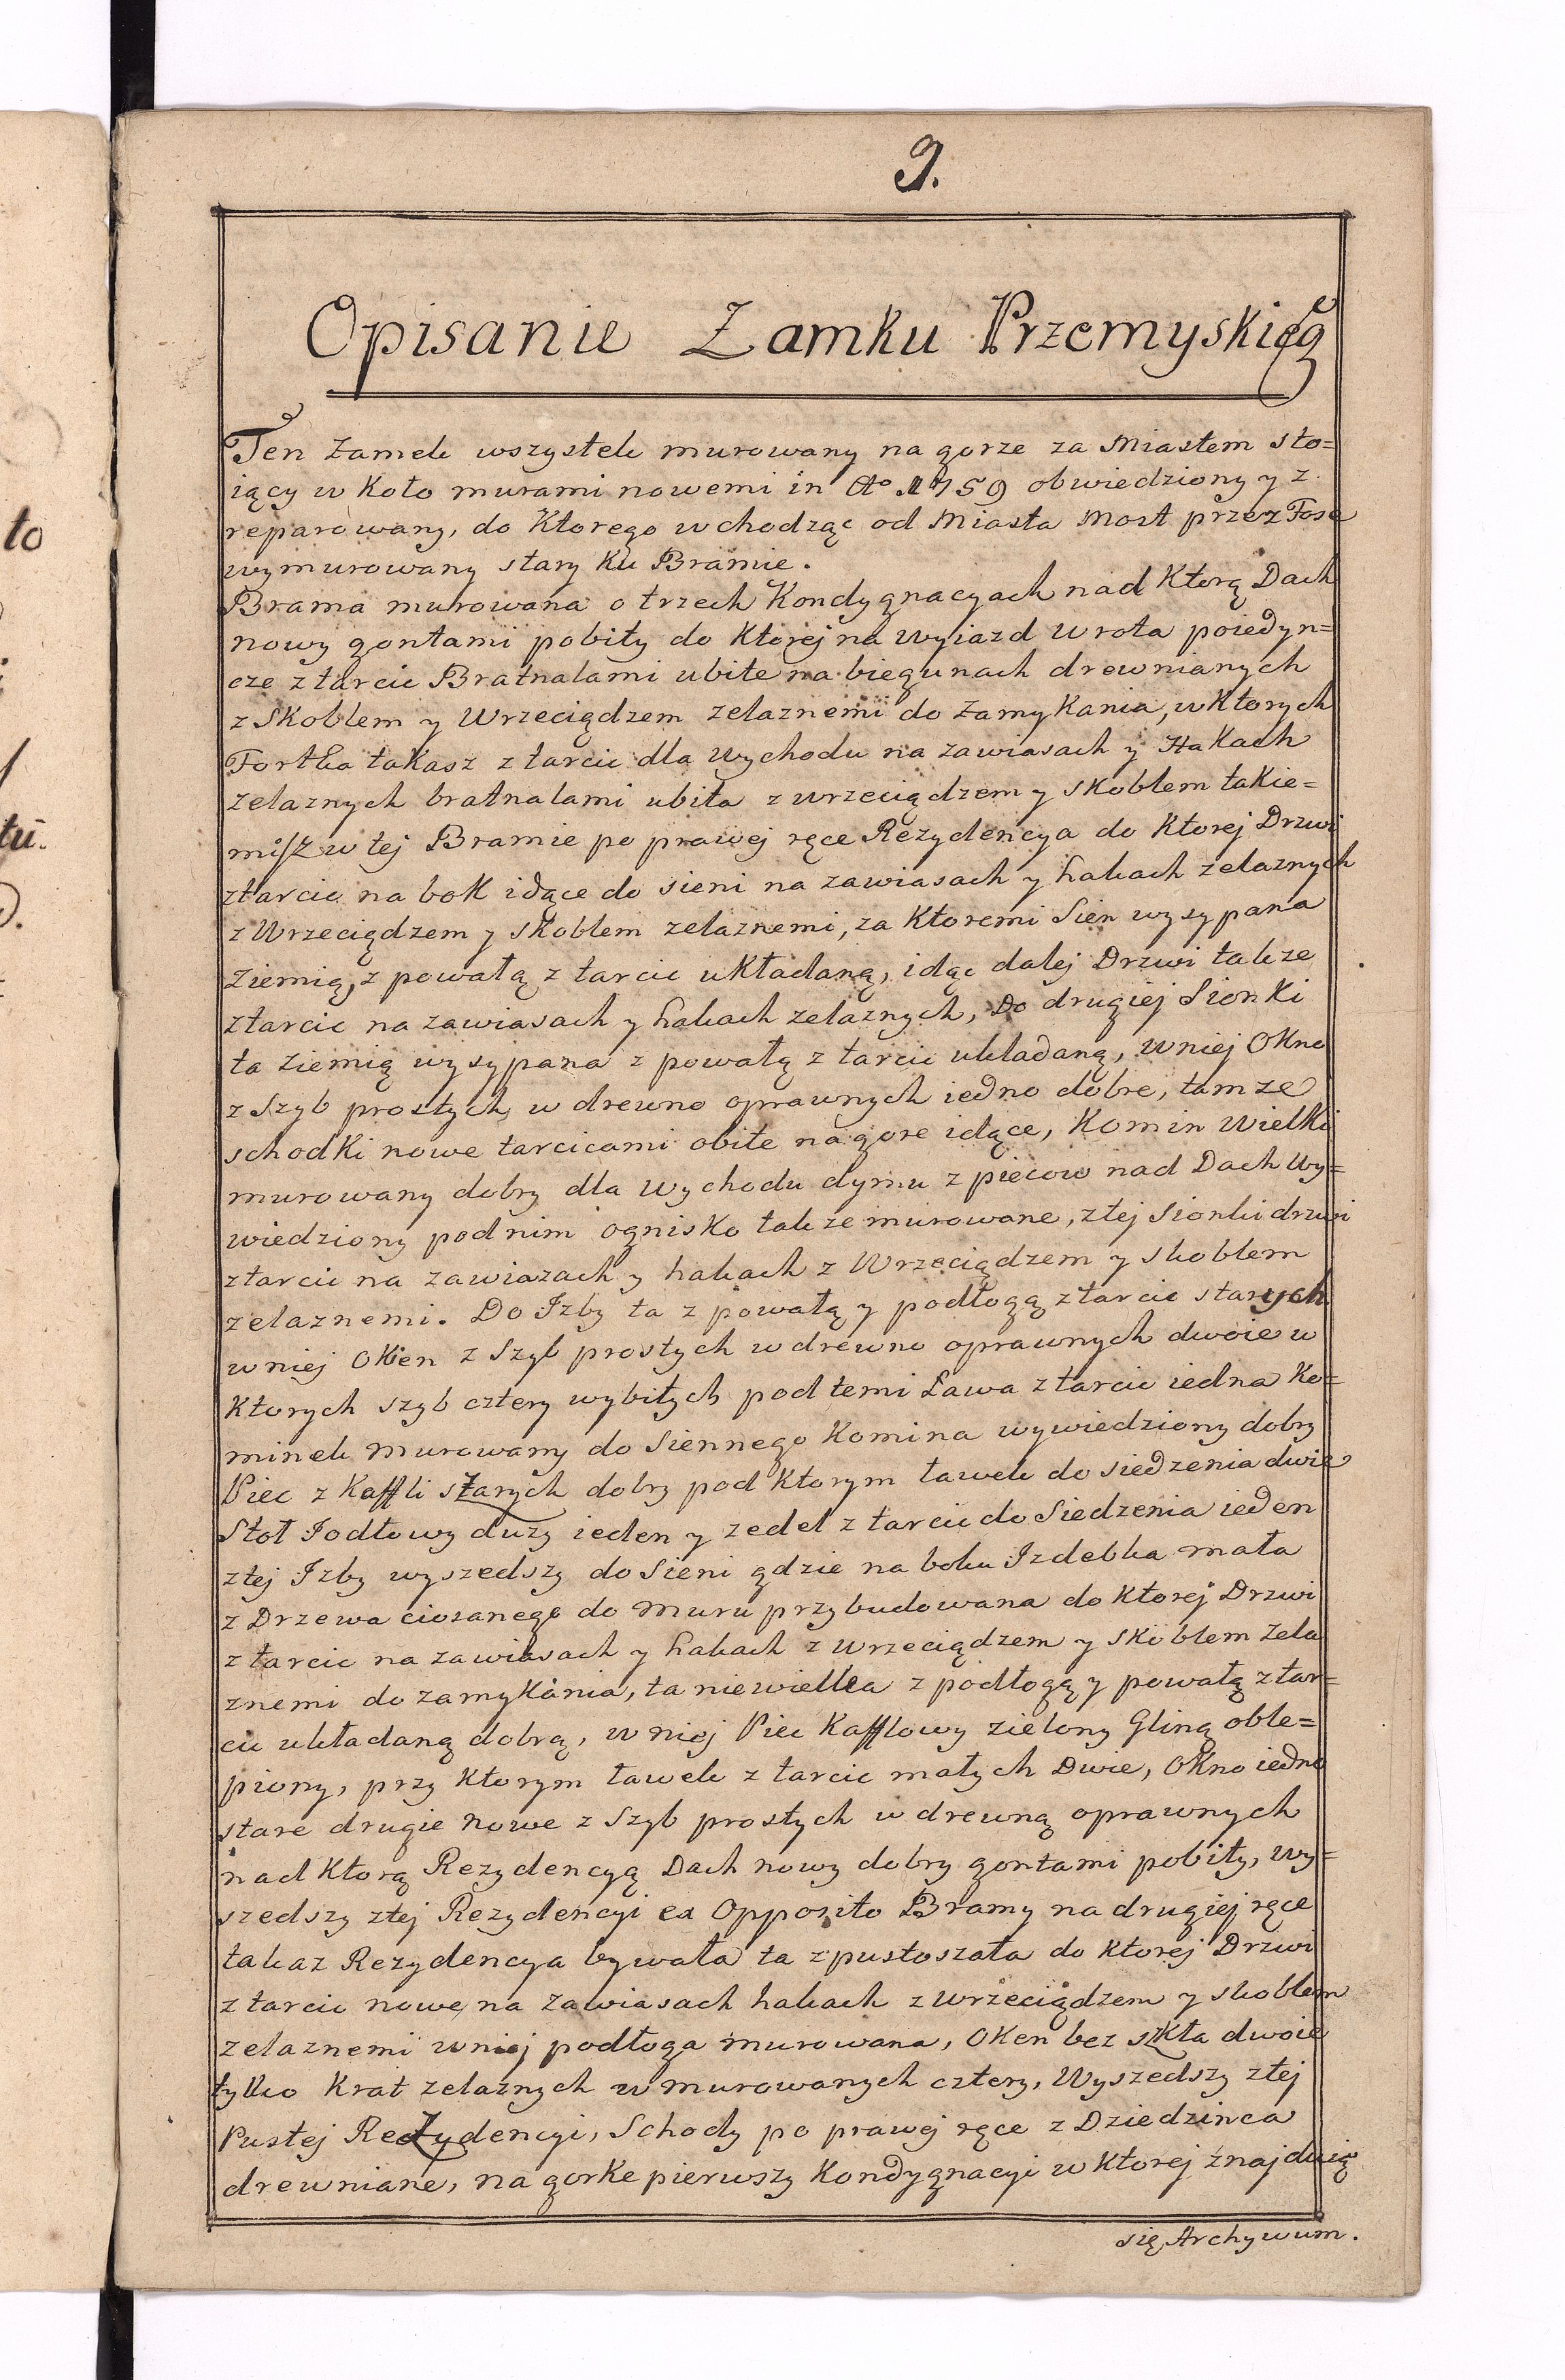 9.
Opisanie Zamku Przemyskiego
Ten Zamek wszystek murowany na gorze za Miastem sto=
iący w Koło murami nowemi in Ao 1759 obwiedziony y z
reparowany, do Ktorego wchodząc od Miasta Most przez Fosę
wymurowany stary Ku Bramie.
Brama murowana o trzech Kondygnacyach nad Ktorą Dach
nowy gontami pobity do Ktorej na Wyiazd Wrota poiedyn=
cze z tarcic Bratnalami ubite na biegunach drewnianych
z Skoblem y Wrzeciądzem zelaznemi do zamyKania, w Ktorych
Fortka takasz z tarcic dla Wychodu na zawiasach y HaKach
zelaznych bratnalami ubita z wrzeciądzem y skoblem takie=
misz w tej Bramie po prawej ręce Rezydencya do Ktorej Drzwi
z tarcic na boK idące do sieni na zawiasach y hakach zelaznych
z Wrzeciądzem y skoblem zelaznemi, za Ktoremi Sien wysypana
Ziemią, z powałą z tarcic uKładaną, idąc dalej Drzwi takze
z tarcic na zawiasach y hakach zelaznych, Do drugiej SionKi
ta Ziemią wysypana z powałą z tarcic układaną, w niej OKno
z Szyb prostych w drewno oprawnych iedno dobre, tamze
schodKi nowe tarcicami obite na gore idące, Komin Wielki
murowany dobry dla Wychodu dymu z piecow nad Dach Wy=
wiedziony pod nim ognisKo takze murowane, z tej Sionki drzwi
z tarcic na zawiazach y hakach z Wrzeciądzem y skoblem
zelaznemi. Do Izby ta z powałą y podłogą z tarcic starych
w niej OKien z Szyb prostych w drewno oprawnych dwoie w
Ktorych szyb cztery wybitych pod temi Ława z tarcic iedna Ko=
minek murowany do Siennego Komina wywiedziony dobry
Piec z Kaffli starych dobry pod Ktorym ławek do siedzenia dwie
Stoł Jodłowy duzy ieden y zedel z tarcic do Siedzenia ieden
z tej Izby wyszedszy do Sieni gdzie na boku Izdebka mała
z Drzewa ciosanego do muru przybudowana do Ktorej Drzwi
z tarcic na zawiasach y hakach z wrzeciądzem y sKoblem zela
znemi do zamyKania, ta niewielka z podłogą y powałą z tar=
cic układaną dobrą, w niej Piec Kafflowy zielony Gliną oble=
piony, przy Ktorym ławek z tarcic małych Dwie, OKno iedno
stare drugie nowe z Szyb prostych w drewną oprawnych
nad Ktorą Rezydencyą Dach nowy dobry gontami pobity, wy=
szedszy z tej Rezydencyi ex Opposito Bramy na drugiej ręce
takaz Rezydencya bywała ta zpustoszała do Ktorej Drzwi
z tarcic nowe na zawiasach hakach z wrzeciądzem y skoblem
zelaznemi w niej podłoga murowana, OKen bez szKła dwoie
tylko Krat zelaznych w murowanych cztery, Wyszedszy z tej
Pustej Rezydencyi, Schody po prawej ręce z Dziedzinca
drewniane, na gorke pierwszy Kondygnacyi w Ktorej znajduią
się Archywum.
to
tu.